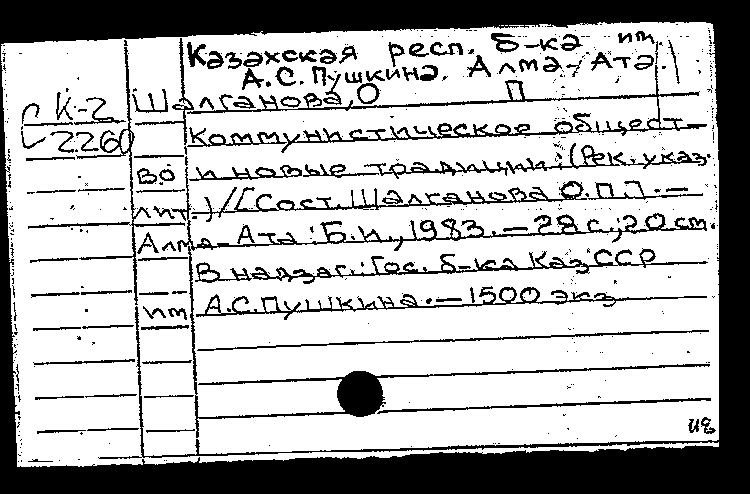 Казахская респ. б-ка им.
А.С.Пушкина. Алма-Ата.
К-2 Шалганова, О П
2260 Коммунистическое общест-
во и новые традиции: (Рек. указ.
лит.) / [Сост. Шалганова О.П.]. —
Алма-Ата : Б.и., 1983. — 28 с.; 20 см.
В надзаг.: Гос. б-ка КазССР
им А.С.Пушкина. — 1500 экз